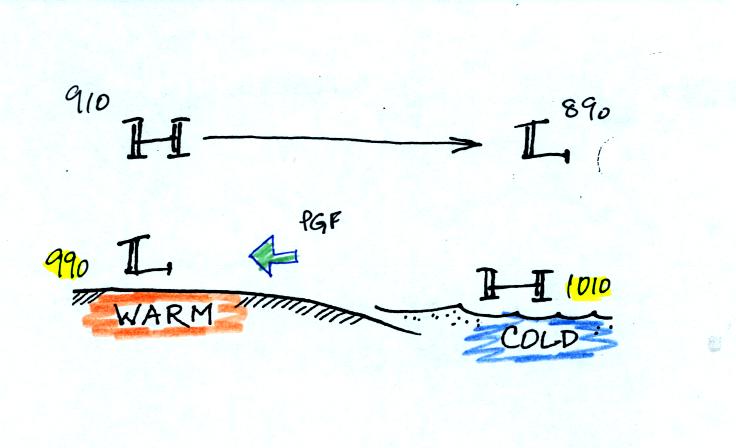 910 H L 890
PGF
990 L H 1010
WARM COLD